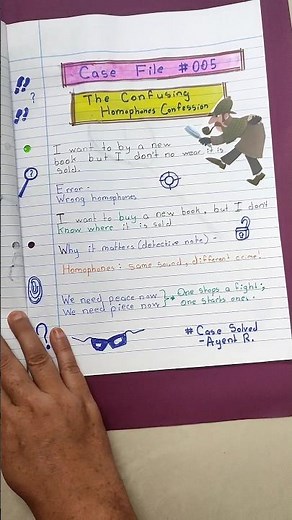 Case File #005
The Confusing
Homophones Confession
I want to by a new
book but I don't no wear it is
sold.
Error -
Wrong homophones
I want to buy a new book, but I don't
know where it is sold
Why it matters (detective note) -
Homophones: same sound, different crime.
We need peace now → One stops a fight,
We need piece now one starts one.
# Case Solved
- Agent R.